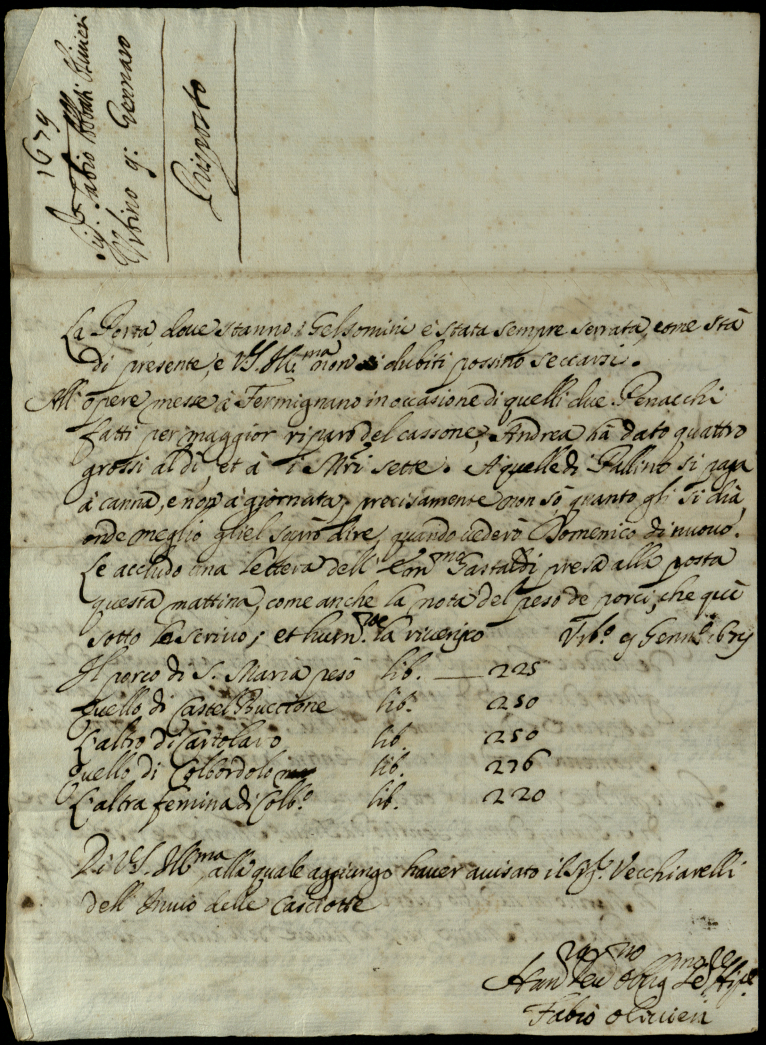 1679
Sig. Fabio
Urbino 9: Gennaro
Risposto
La Porta, dove stanno i Gelsomini è stata sempre serrata, e ne stà
di presente, e V.S. Ill.ma non dubiti possino seccarsi.
All'opere messe à Fermignano in occasione di quelli due Penacchi
fatti per maggior riparo del cassone, Andrea hà dato quattro
grossi al dì, et à i Mri sette. A quelle di Gallino si paga
à canna, e non à giornata, precisamente non sò quanto gli si dia,
onde meglio gliel saprò dire, quando vederò Domenico di nuovo.
Le accludo una lettera dell' Gastaldi presa alla posta
questa mattina, come anche la nota del peso de porci, che quì
sotto le scrivo; et hum.te la riverisco Urb.o 9 Genn.o 1679
Il porco di S. Maria pesò lib. — 225
Quello di Castel Buccione lib. 250
L'altro di Cartolaro lib. 250
Quello di Colbordolo lib. 276
L'altra femina di Colb.o lib. 220
Di V.S. Ill.ma alla quale aggiungo haver avisato il Sig.r Vecchiarelli
dell'Invio delle Casciotte
Fabio Olivieri